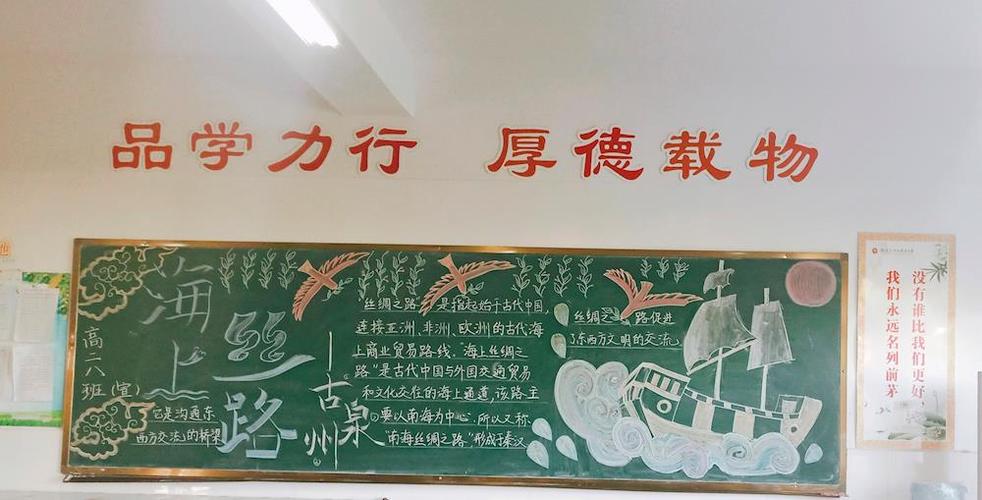 品学力行 厚德载物
海上丝路
古泉州
高二八班(宣)
它是沟通东
西方交流的桥梁
丝绸之路 是指起始于古代中国,
连接亚洲、非洲、欧洲的古代海
上商业贸易路线. 海上丝绸之
路"是古代中国与外国交通贸易
和文化交往的海上通道,该路主
要以南海为中心,所以又称
"南海丝绸之路"形成于秦汉
丝绸之 路促进
了东西方文明的交流
没有谁比我们更好
我们永远名列前茅